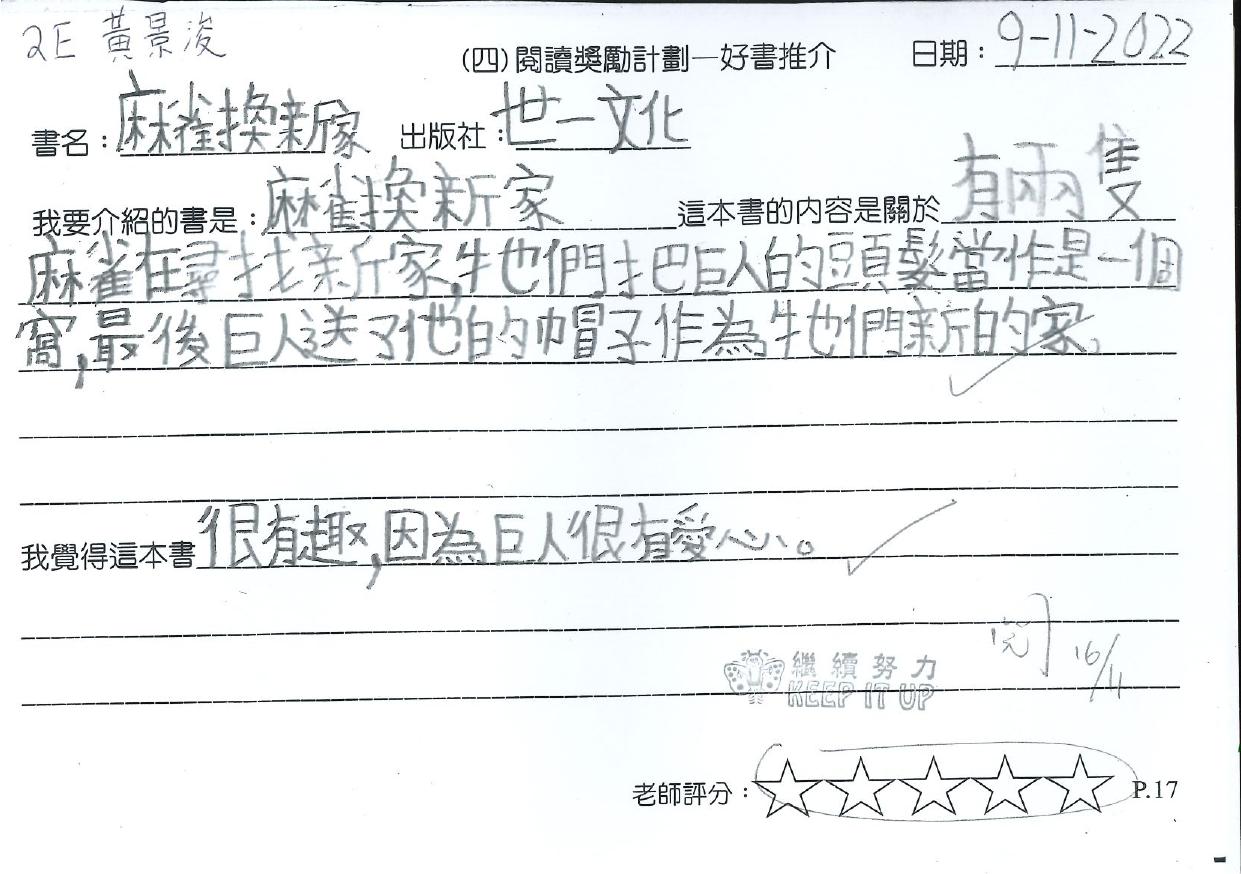 2E 黃景浚
(四)閱讀獎勵計劃一好書推介 日期：9-11-2022
書名：麻雀換新家 出版社：世一文化
我要介紹的書是：麻雀換新家 這本書的內容是關於有兩隻
麻雀在尋找新家,牠們把巨人的頭髮當作是一個
窩,最後巨人送了他的帽子作為牠們新的家。
我覺得這本書很有趣,因為巨人很有愛心。
閱 16/11
繼續努力
KEEP IT UP
老師評分：☆☆☆☆☆ P.17